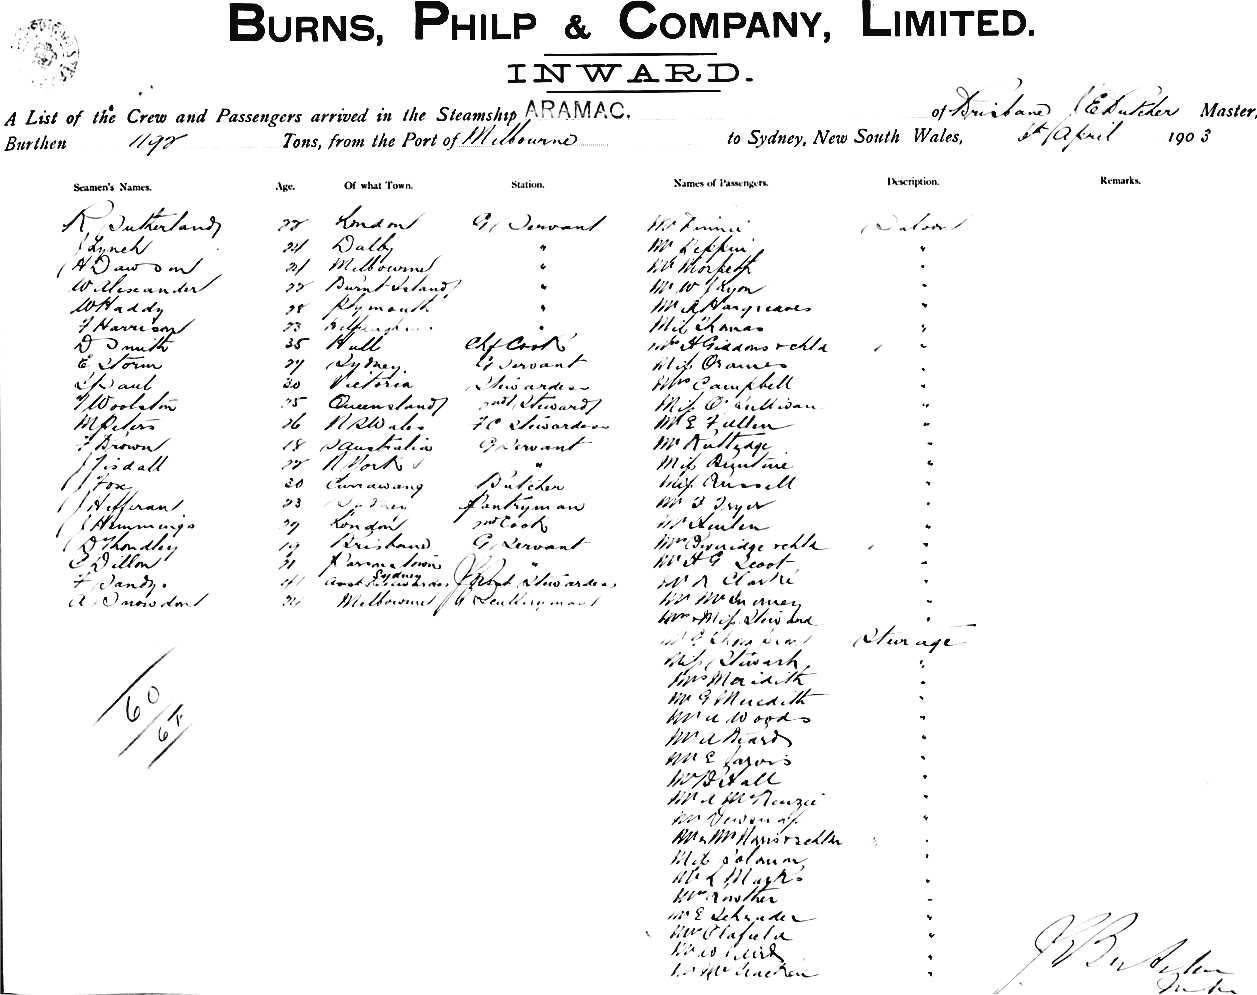 BURNS, PHILP & COMPANY, LIMITED.
INWARD.
A List of the Crew and Passengers arrived in the Steamship ARAMAC. of Brisbane J E Butcher Master,
Burthen 1192 Tons, from the Port of Melbourne to Sydney, New South Wales, April 1903
Seamen's Names. Age. Of what Town. Station. Names of Passengers. Description. Remarks.
R Sutherland 22 London G Servant Saloon
J Lynch 24 Dalby " "
H Dawson 24 Melbourne " Mr Morpeth "
W Alexander 22 Burnt Island " Mr W J Lyon "
W Haddy 28 Plymouth " Mr A Hargreaves "
F Harrison 23 " Miss Thomas "
D Smith 35 Hull Chf Cook Mrs H Giddons & chld "
E Storm 27 Sydney G Servant Miss "
30 Victoria Stewardess Mrs Campbell "
F Woolston 25 Queensland 2nd Steward Miss O'Sullivan "
M Peters 26 N S Wales F C Stewardess Mr E Fullen "
F Brown 18 S Australia G Servant Mr Rutledge "
J Tisdall 22 N York " Miss Buntine "
J Fox 20 Currawang Butcher Miss Russell "
J Hefferan 23 Sydney Pantryman Mr F Fryer "
J Hemmings 29 London 2nd Cook "
D Thondley 19 Brisbane G Servant Mrs & chld "
C Dillon 21 " Mr H G Scoot "
F Dandy 41 Sydney Stewardess Mr R Clarke "
A Snowdon 24 Melbourne G Sculleryman Mr McInerney "
Mrs & Miss Steward "
Steerage
Miss Stewart "
Mrs Meridith "
Mr G Meredith "
Mr A Woods "
Mr A Beard "
Mr E Jarvis "
Mr B Hall "
Mr A McKenzie "
Mr "
Mr & Mrs Harris & 2 chldn "
Miss Solomon "
Mr L Marks "
Mrs Lowther "
Mr E Schrader "
Mr Olafield "
Mr W "
McCracken "
60
67
J E Butcher